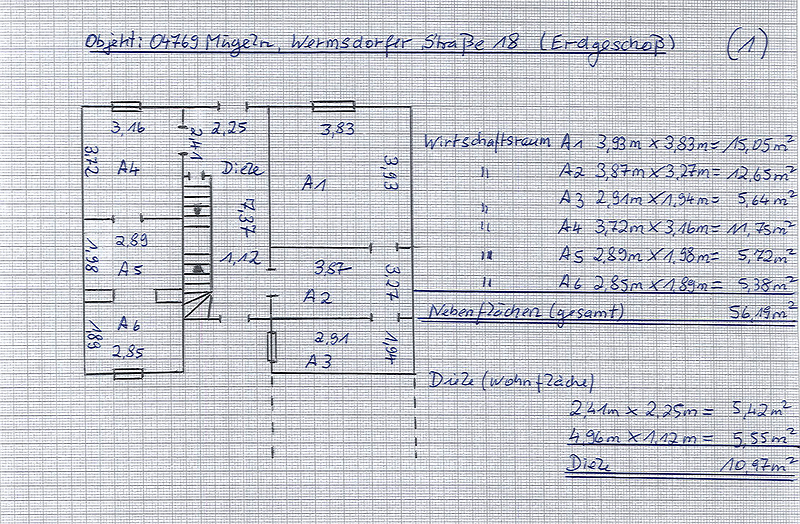 Objekt: 04769 Mügeln, Wermsdorfer Straße 18 (Erdgeschoß) (1)
3,16
2,25
3,83
2,41
3,72
A4
Diele
A1
3,93
7,37
2,89
1,98
A5
1,12
3,87
3,27
A2
A6
1,89
2,85
2,91
A3
1,94
Wirtschaftsraum A1 3,93m x 3,83m = 15,05m²
" A2 3,87m x 3,27m = 12,65m²
" A3 2,91m x 1,94m = 5,64m²
" A4 3,72m x 3,16m = 11,75m²
" A5 2,89m x 1,98m = 5,72m²
" A6 2,85m x 1,89m = 5,38m²
Nebenflächen (gesamt) 56,19m²
Diele (Wohnfläche)
2,41m x 2,25m = 5,42m²
4,96m x 1,12m = 5,55m²
Diele 10,97m²